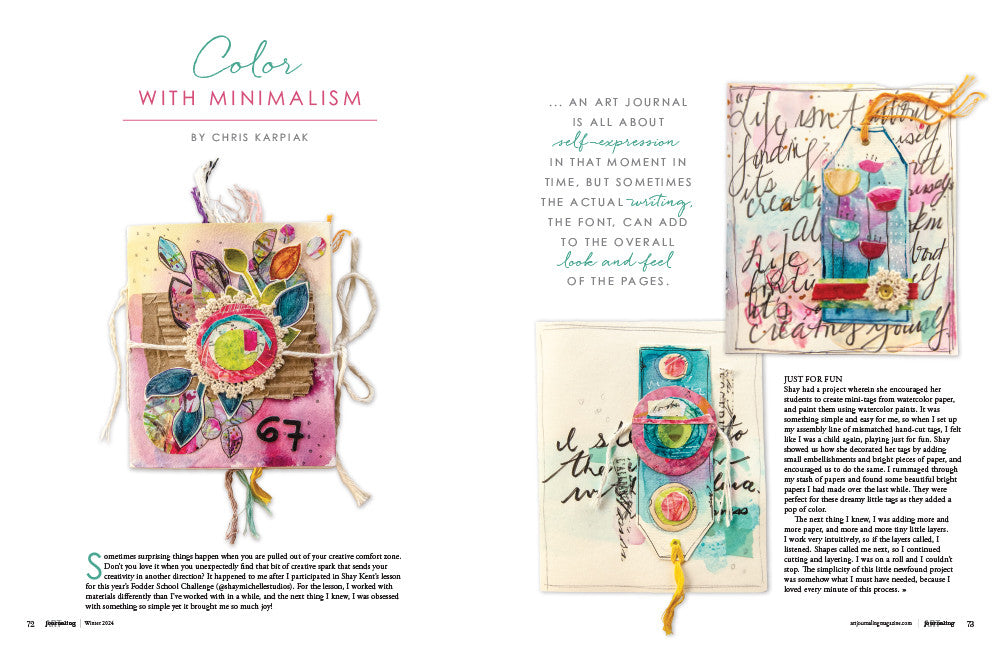 Color
WITH MINIMALISM
BY CHRIS KARPIAK
67
Sometimes surprising things happen when you are pulled out of your creative comfort zone.
Don't you love it when you unexpectedly find that bit of creative spark that sends your
creativity in another direction? It happened to me after I participated in Shay Kent's lesson
for this year's Fodder School Challenge (@shaymichellestudios). For the lesson, I worked with
materials differently than I've worked with in a while, and the next thing I knew, I was obsessed
with something so simple yet it brought me so much joy!
72 journaling | Winter 2024
... AN ART JOURNAL
IS ALL ABOUT
self-expression
IN THAT MOMENT IN
TIME, BUT SOMETIMES
THE ACTUAL writing,
THE FONT, CAN ADD
TO THE OVERALL
look and feel
OF THE PAGES.
"Life isn't about
finding yourself
it's
creat
Life
creating yourself.
JUST FOR FUN
Shay had a project wherein she encouraged her
students to create mini-tags from watercolor paper,
and paint them using watercolor paints. It was
something simple and easy for me, so when I set up
my assembly line of mismatched hand-cut tags, I felt
like I was a child again, playing just for fun. Shay
showed us how she decorated her tags by adding
small embellishments and bright pieces of paper, and
encouraged us to do the same. I rummaged through
my stash of papers and found some beautiful bright
papers I had made over the last while. They were
perfect for these dreamy little tags as they added a
pop of color.
The next thing I knew, I was adding more and
more paper, and more and more tiny little layers.
I work very intuitively, so if the layers called, I
listened. Shapes called me next, so I continued
cutting and layering. I was on a roll and I couldn't
stop. The simplicity of this little newfound project
was somehow what I must have needed, because I
loved every minute of this process. »
artjournalingmagazine.com | journaling 73